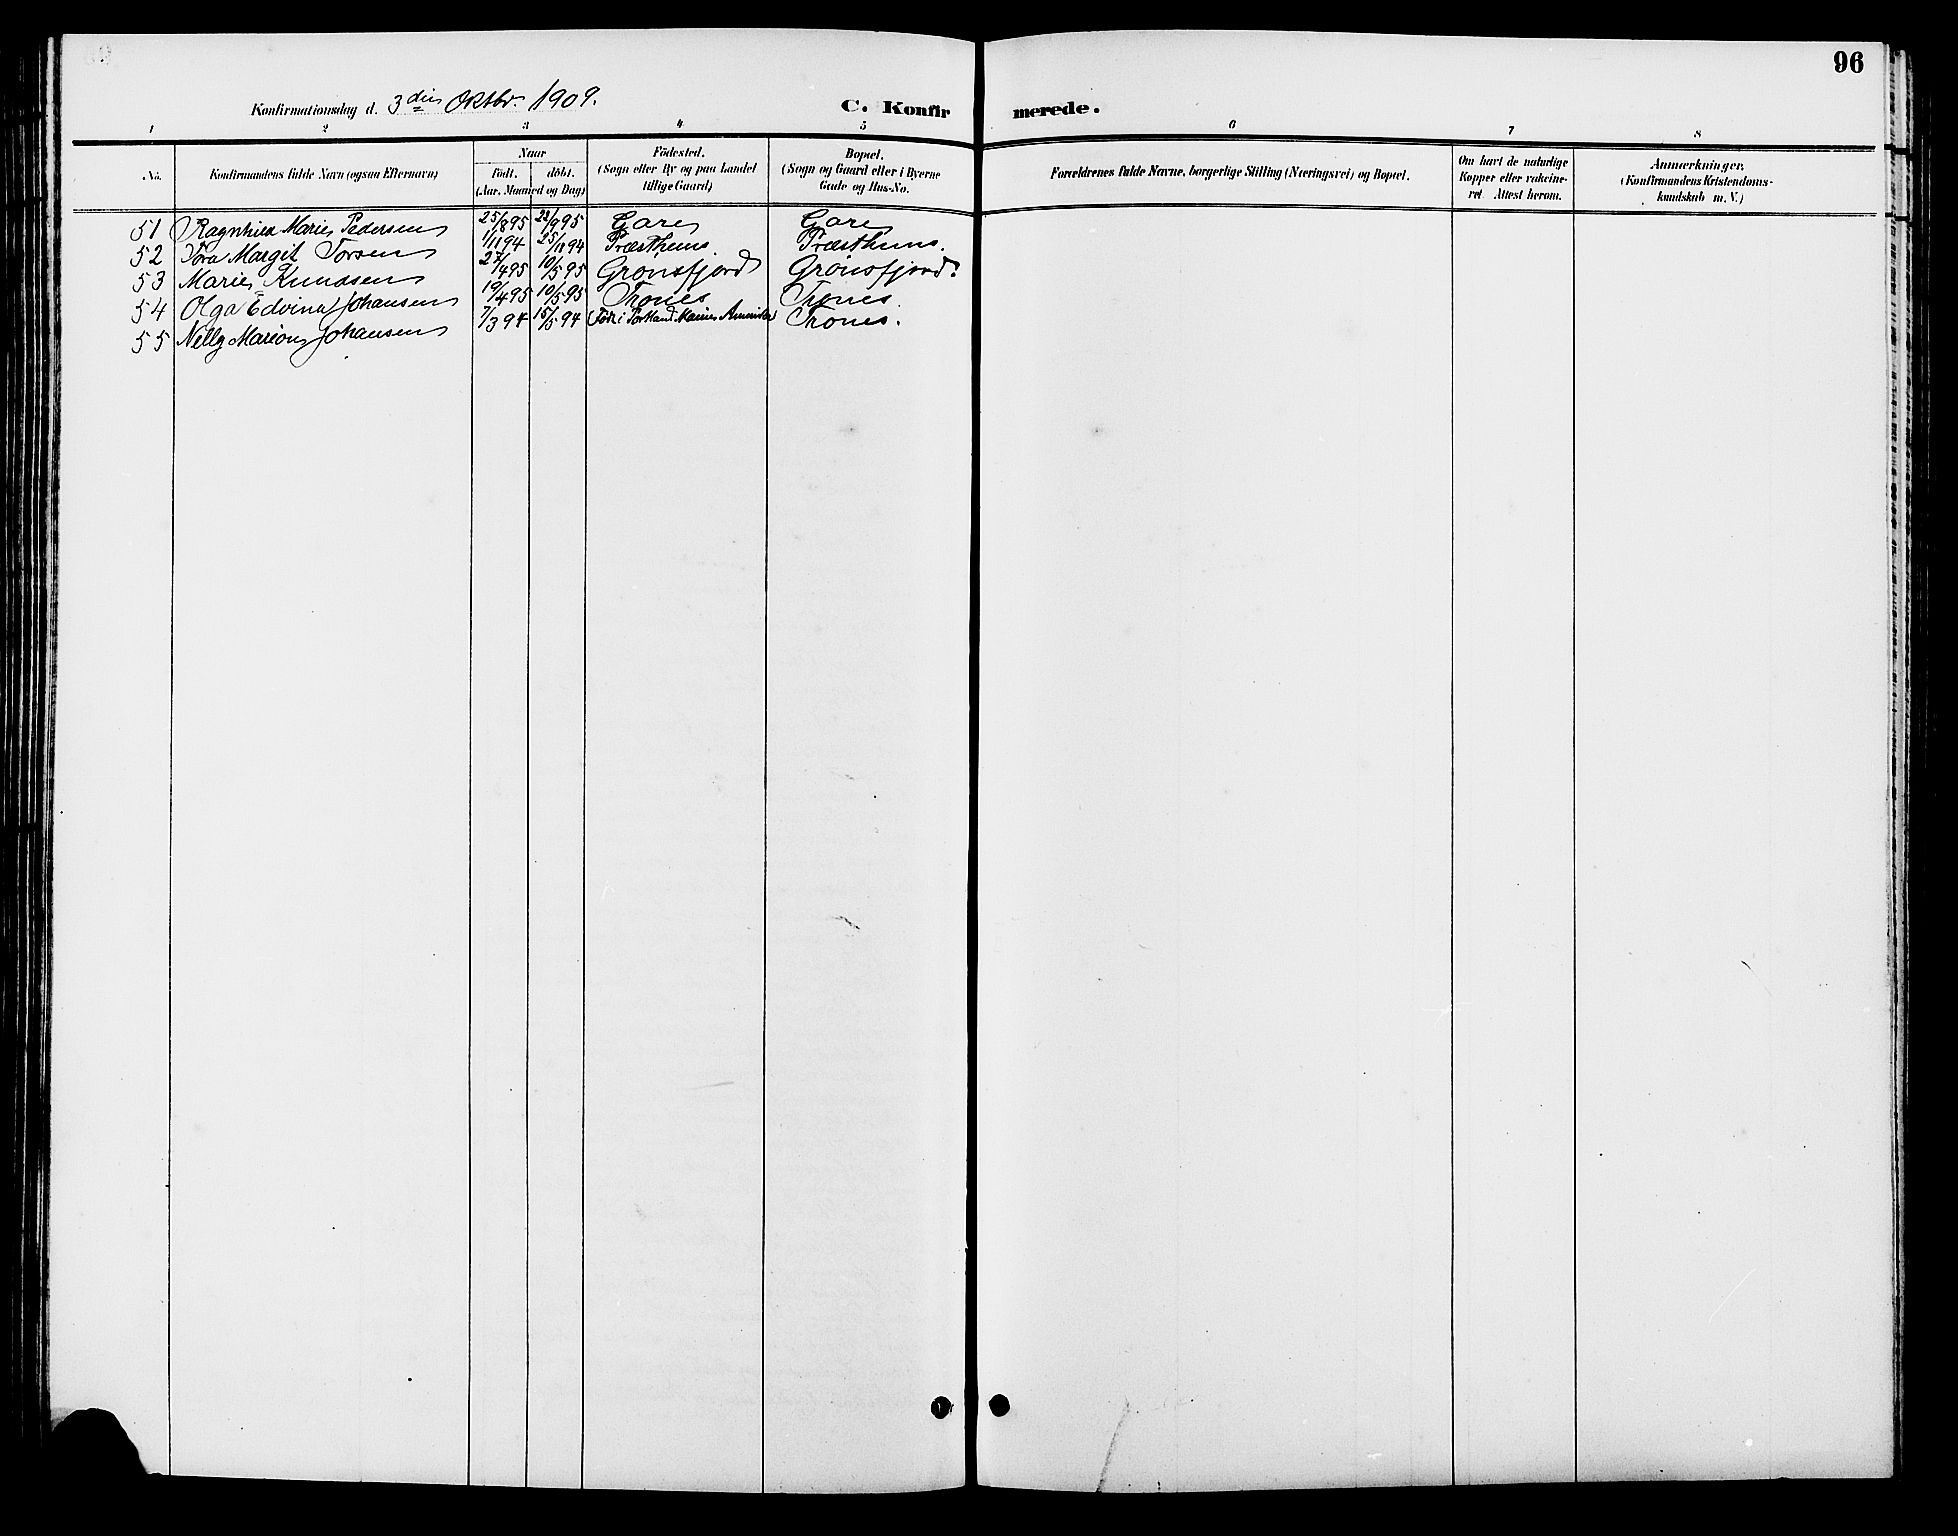 96
Konfirmationsdag d. 3 die Oktbr. 1909.
C. Konfirmerede.
1 2 3 4 5 6 7 8
No.
Konfirmandens fulde Navn (ogsaa Efternavn)
Naar
Födt. döbt.
(Aar, Maaned og Dag)
Födested.
(Sogn eller By og paa Landet
tillige Gaard)
Bopæl.
(Sogn og Gaard eller i Byerne
Gade og Hus-No.
Forældrenes fulde Navne, borgerlige Stilling (Næringsvei) og Bopæl.
Om havt de naturlige
Kopper eller vakcine-
ret Attest herom.
Anmærkninger,
(Konfirmandens Kristendoms-
kundskab m. V.)
51 Ragnhild Marie Pedersen 25/8 95 22/9 95 Gare Gare
52 Tora Margit Torsen 1/11 94 25/11 94 Præsthems Præsthems.
53 Marie Knudsen 27/4 95 10/5 95 Grønsfjord Grønsfjord.
54 Olga Edvina Johansen 19/4 95 10/5 95 Trones Trones.
55 Nelly Marion Johansen 7/3 94 15/5 94 (Föd i Portland Maine Amerika) Trones.